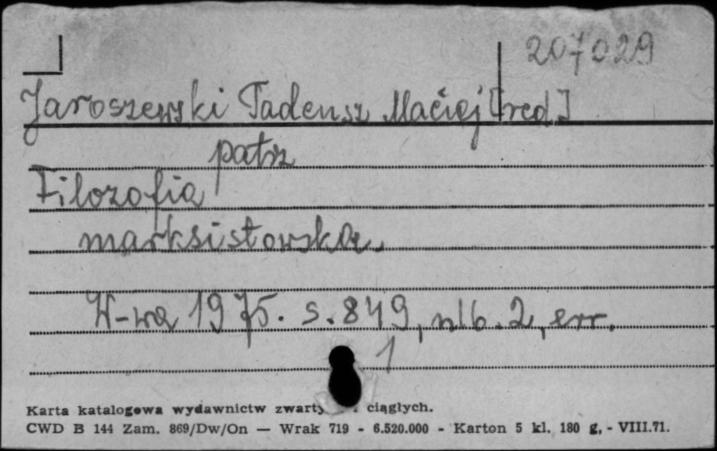 207029
Jaroszewski Tadeusz Maciej [red]
patrz
Filozofia
marksistowska.
W-wa 1975. s. 849, nlb. 2, err.
1
Karta katalogowa wydawnictw ciągłych.
CWD B 144 Zam. 869/Dw/On — Wrak 719 - 6.520.000 - Karton 5 kl. 180 g, - VIII.71.